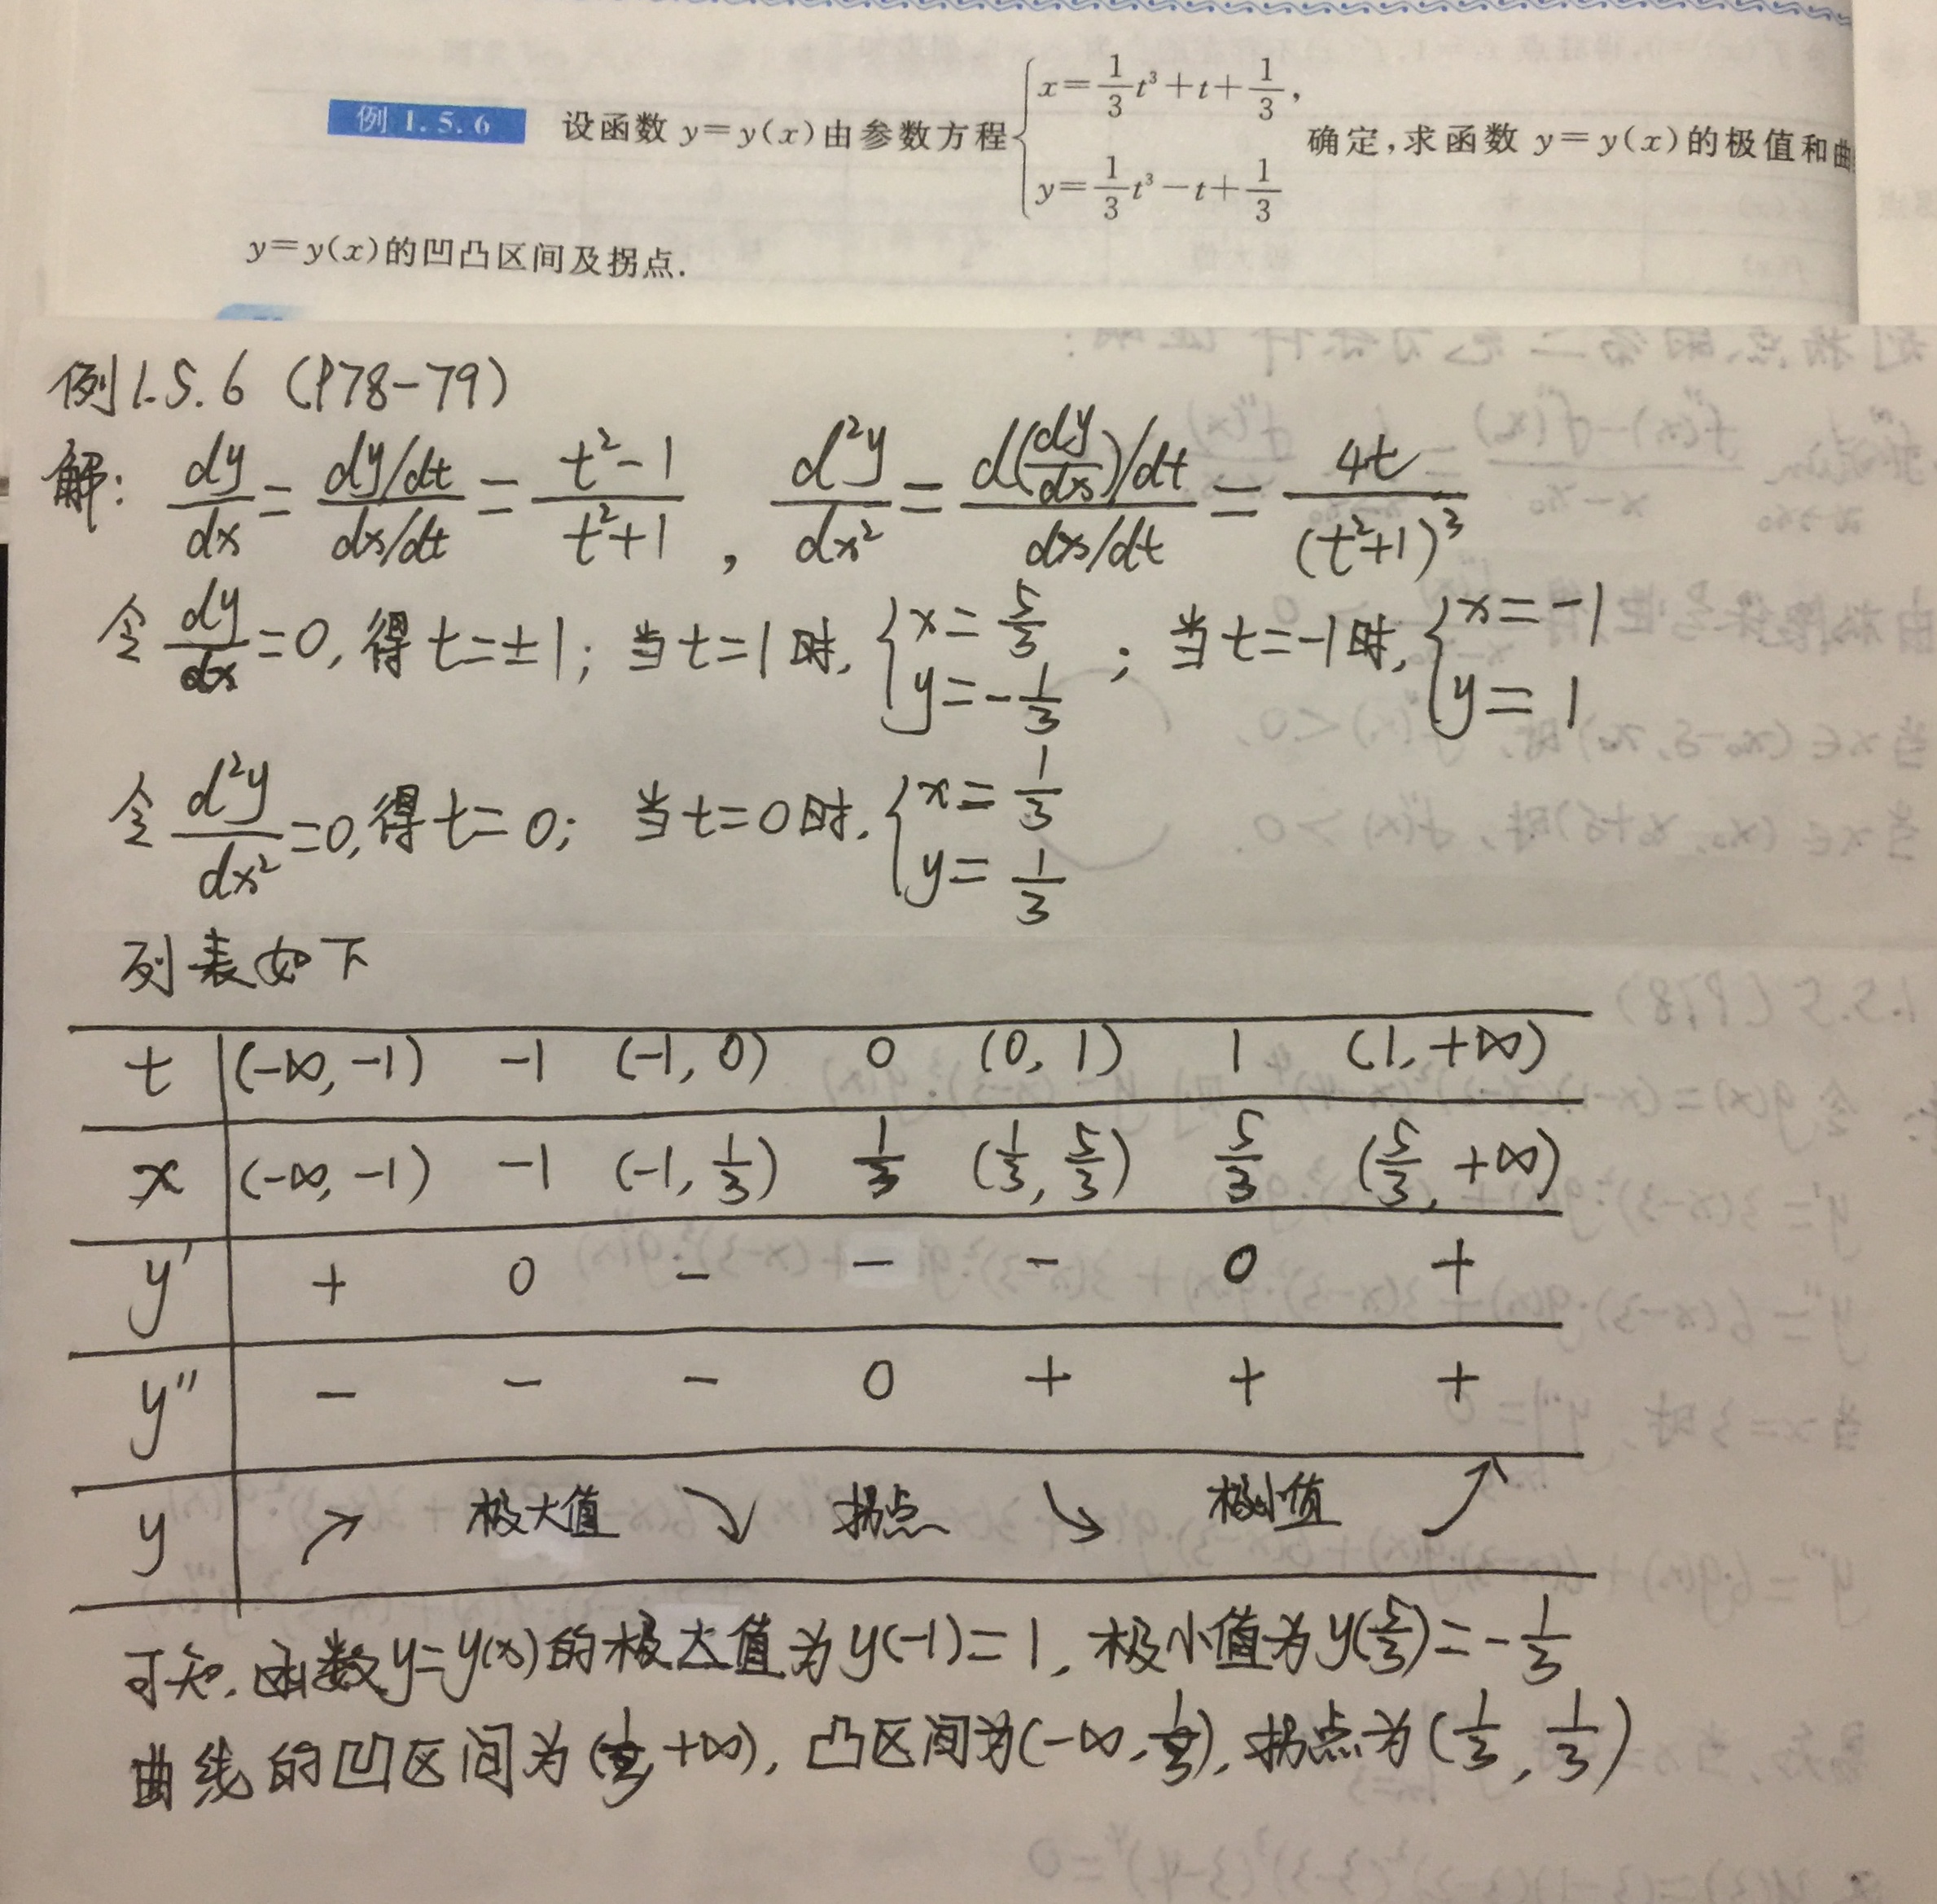 例 1.5.6 设函数 y=y(x)由参数方程 { x=1/3 t³+t+1/3, y=1/3 t³-t+1/3 确定,求函数 y=y(x)的极值和曲
y=y(x)的凹凸区间及拐点.
例1.5.6 (P78-79)
解: dy/dx = (dy/dt)/(dx/dt) = (t²-1)/(t²+1) , d²y/dx² = (d(dy/dx)/dt)/(dx/dt) = 4t/(t²+1)³
令 dy/dx=0, 得 t=±1; 当 t=1时, { x=5/3 y=-1/3 ; 当 t=-1时, { x=-1 y=1
令 d²y/dx²=0, 得 t=0; 当 t=0时, { x=1/3 y=1/3
列表如下
t (-∞,-1) -1 (-1,0) 0 (0,1) 1 (1,+∞)
x (-∞,-1) -1 (-1,1/3) 1/3 (1/3,5/3) 5/3 (5/3,+∞)
y' + 0 - - - 0 +
y'' - - - 0 + + +
y ↗ 极大值 ↘ 拐点 ↘ 极小值 ↗
可知,函数y=y(x)的极大值为y(-1)=1, 极小值为y(5/3)=-1/3
曲线的凹区间为(1/3,+∞), 凸区间为(-∞,1/3), 拐点为(1/3,1/3)